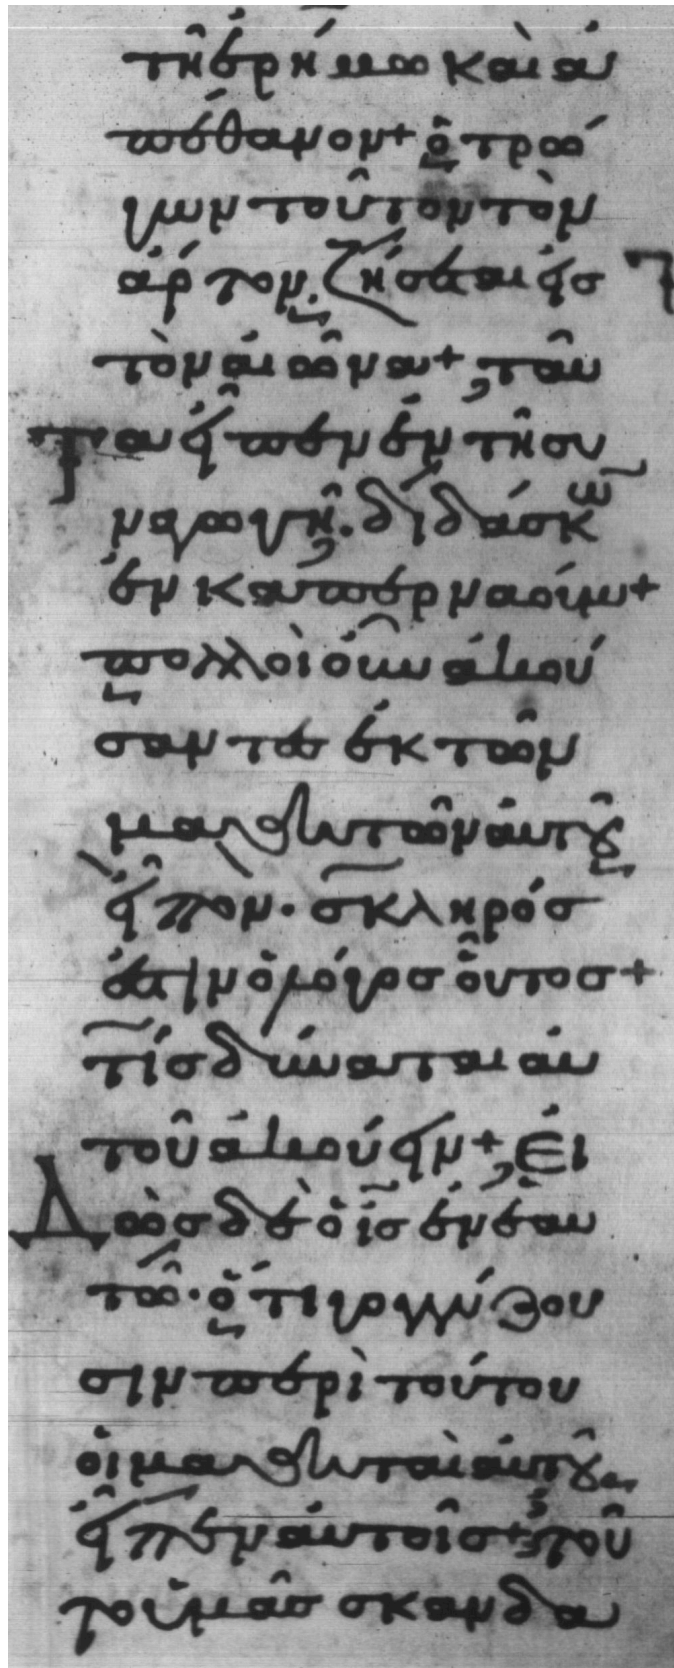 τῆ ἐρήμω καὶ ἀ
πέθανον + ὁ τρώ
γων τοῦτον τὸν
ἄρτον. ζήσεται εἰσ
τὸν αἰῶνα +, ταῦ
τα εἶπεν ἐν τῆ συ
ναγωγῆ. διδάσκω
ἐν καπερναούμ +
πολλοὶ οὖν ἀκού
σαντεσ ἐκ τῶν
μαθητῶν ἀυτοῦ
εἶπον · σκληρόσ
ἐστιν ὁ λόγοσ οὗτοσ +
τίσ δύναται ἀυ
τοῦ ἀκούειν +, εἰ
δὼσ δὲ ὁ ἰσ ἐν ἑαυ
τῶ · ὅτι γογγύζου
σιν περὶ τούτου
ὁι μαθηταὶ ἀυτοῦ
εἶπεν ἀυτοῖσ + τοῦ
το ὑμᾶσ σκανδα